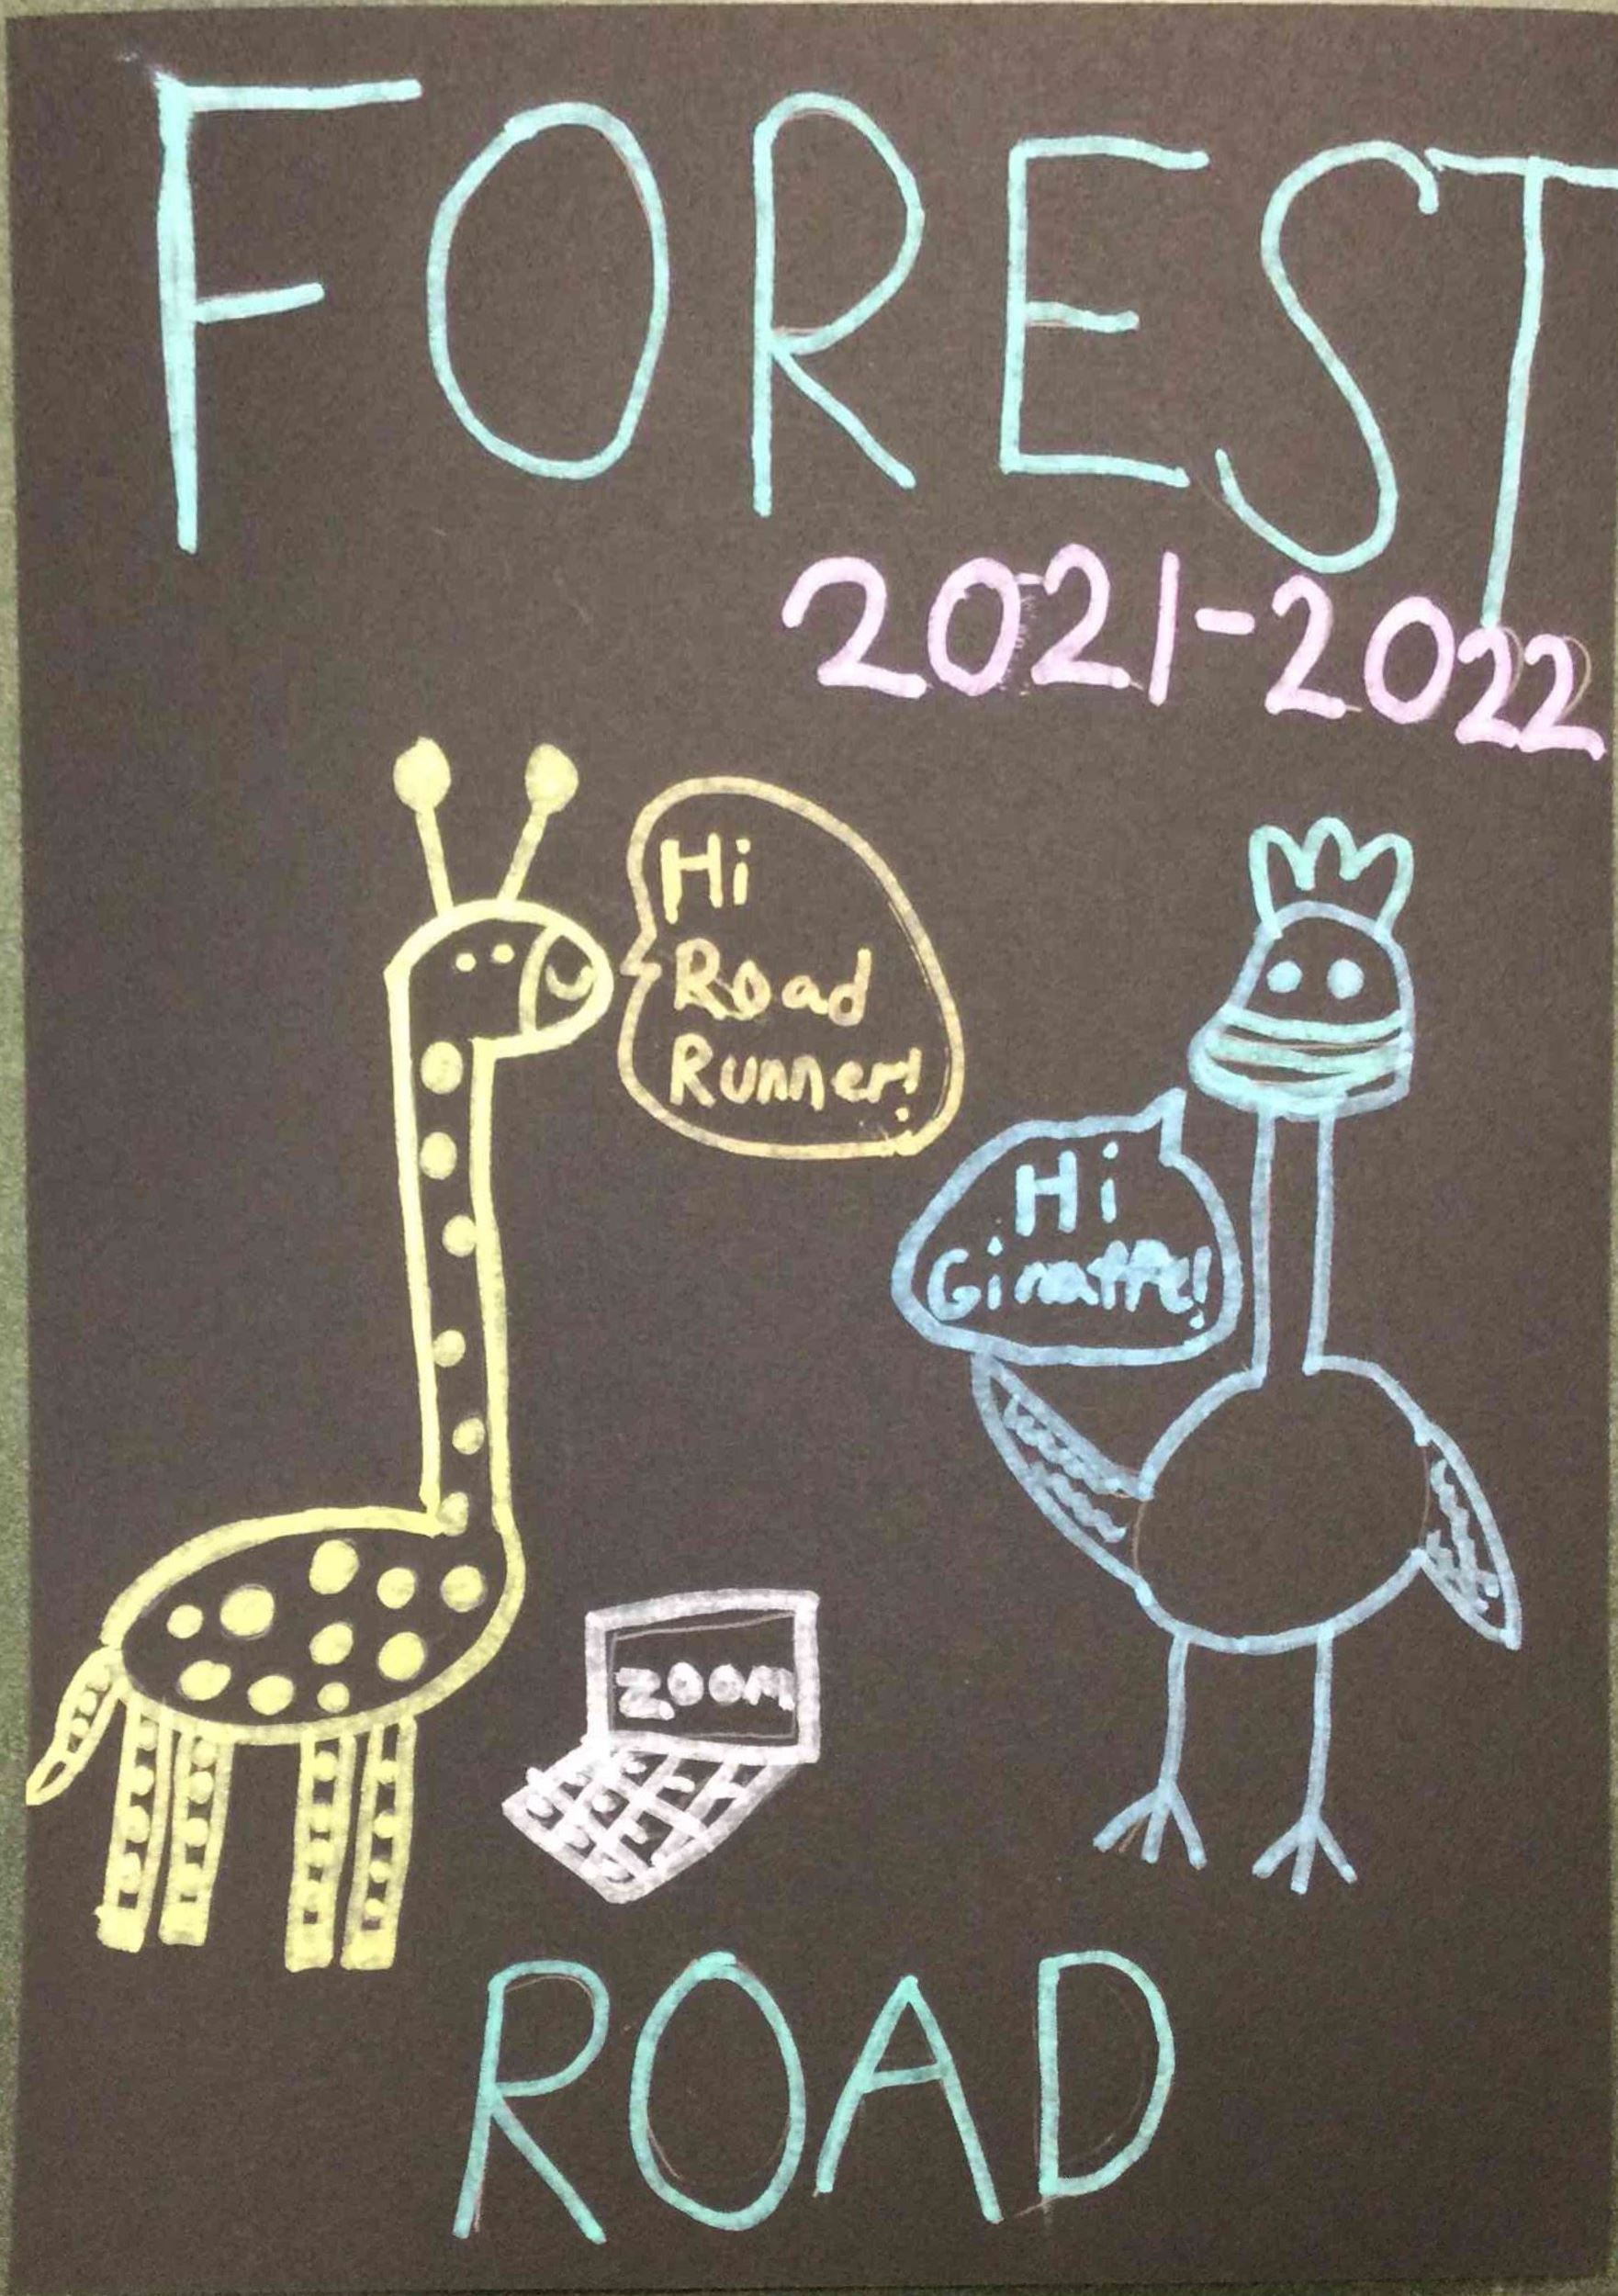 FOREST
2021-2022
Hi
Road
Runner!
Hi
Giraffe!
ZOOM
ROAD